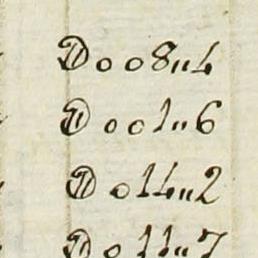 D 008"4
D 001"6
D 014"2
D 011"7